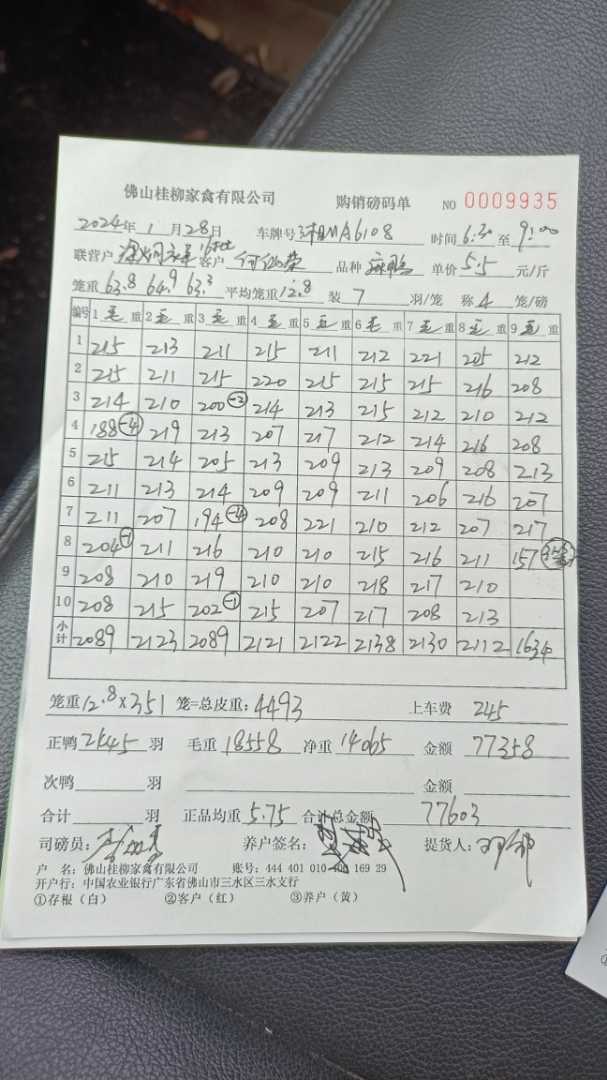 佛山桂柳家禽有限公司 购销磅码单 NO 0009935
2024年1月28日 车牌号 MA6108 时间 6:30 至 9:00
联营户 客户 何 荣 品种 麻鸭 单价 5.5 元/斤
笼重 63.8 64.9 63.3 平均笼重 12.8 装 7 羽/笼 称 4 笼/磅
编号 1 毛 重 2 毛 重 3 毛 重 4 毛 重 5 毛 重 6 毛 重 7 毛 重 8 毛 重 9 毛 重
1 215 213 211 215 211 212 221 205 212
2 215 211 215 220 215 215 215 216 208
3 214 210 200 -2 214 213 215 212 210 212
4 188 -4 219 213 207 217 212 214 216 208
5 215 214 205 213 209 213 209 208 213
6 211 213 214 209 209 211 206 216 207
7 211 207 194 -4 208 221 210 212 207 217
8 204 -1 211 216 210 210 215 216 211 157
9 208 210 219 210 210 218 217 210
10 208 215 202 -1 215 207 217 208 213
小计 2089 2123 2089 2121 2122 2138 2130 2112 1634
笼重 12.8×351 笼=总皮重: 4493 上车费 245
正鸭 2445 羽 毛重 18558 净重 14065 金额 77358
次鸭 羽 金额
合计 羽 正品均重 5.75 合计总金额 77603
司磅员: 养户签名: 提货人:
户 名: 佛山桂柳家禽有限公司 账号: 444 401 010 400 169 29
开户行: 中国农业银行广东省佛山市三水区三水支行
①存根(白) ②客户(红) ③养户(黄)